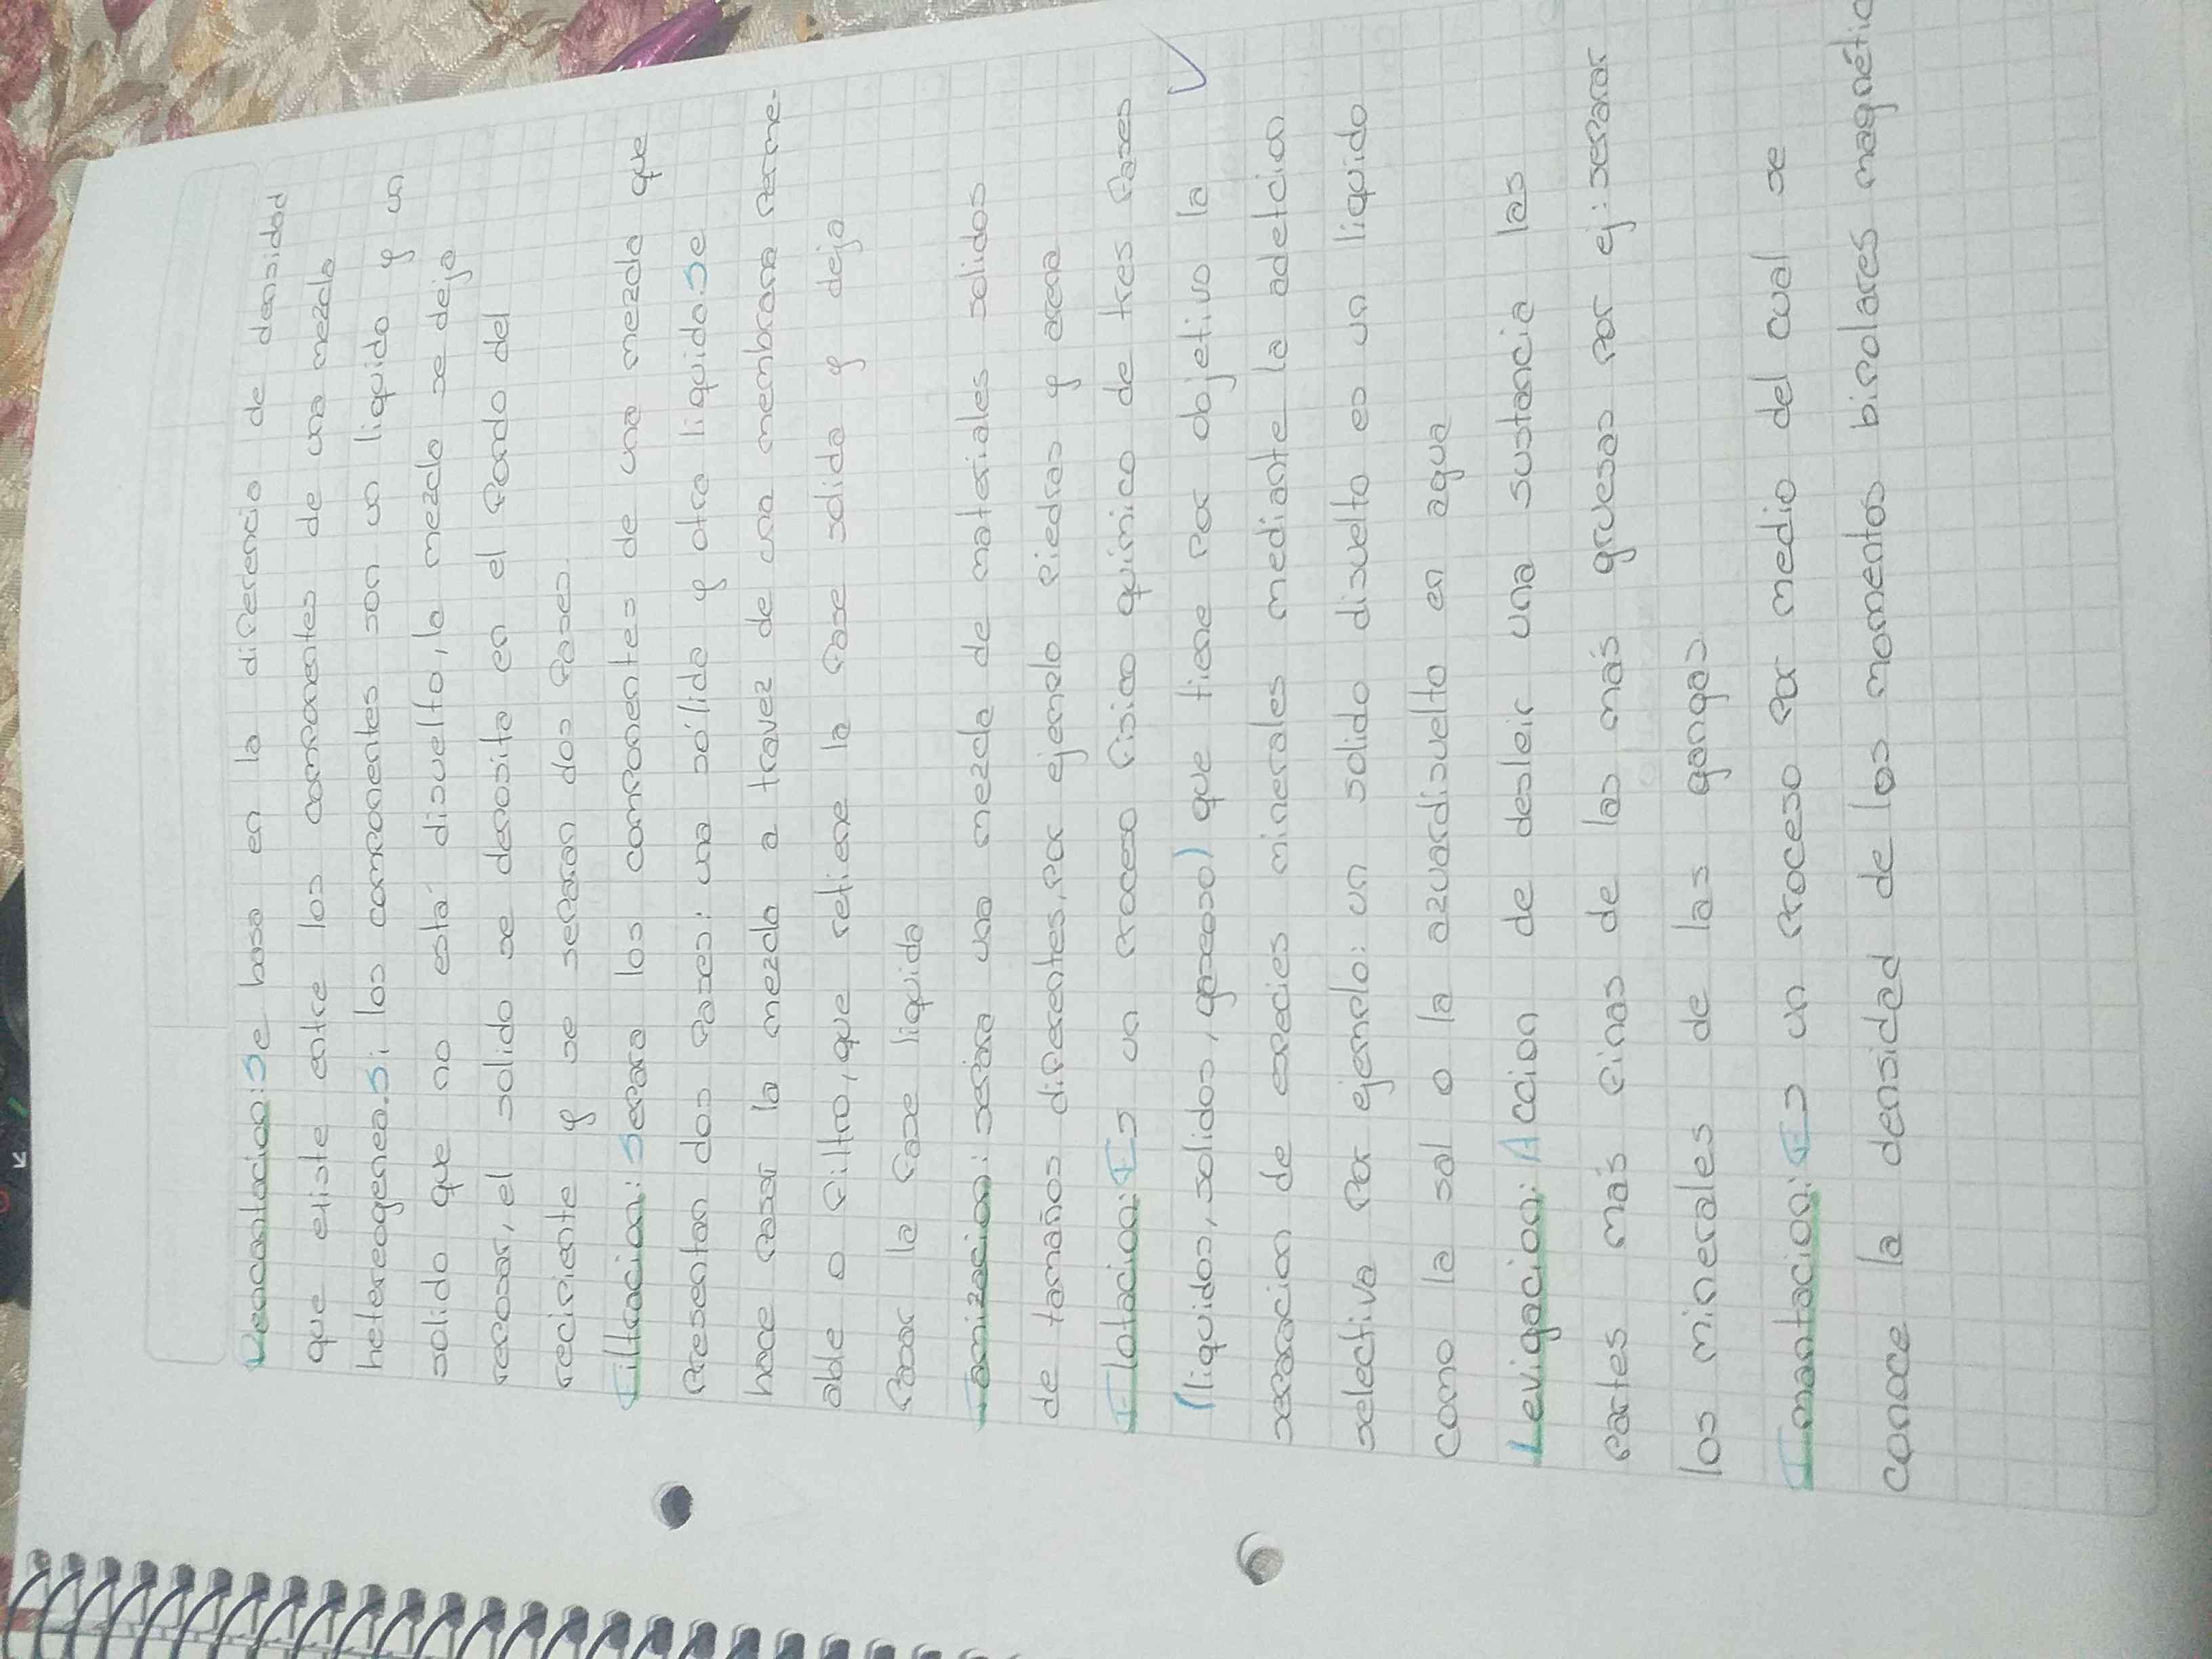 Decantacion: Se basa en la diferencia de densidad
que existe entre los componentes de una mezcla
hetereogenea. Si los componentes son un liquido y un
solido que no está disuelto, la mezcla se deja
reposar, el solido se deposita en el fondo del
recipiente y se separan dos fases.
Filtracion: Separa los componentes de una mezcla que
Presentan dos fases: una sólida y otra liquido. Se
hace pasar la mezcla a travez de una membrana perme-
able o filtro, que retiene la fase solida y deja
Pasar la fase liquida
Tamizacion: separa una mezcla de materiales solidos
de tamaños diferentes, por ejemplo piedras y arena
Flotacion: Es un proceso fisico quimico de tres fases
(liquidos, solidos, gaseoso) que tiene por objetivo la
separacion de especies minerales mediante la adelcion
selectiva Por ejemplo: un solido disuelto es un liquido
como la sal o la azucardisuelto en agua
Levigacion: Accion de desleir una sustancia las
partes más finas de las más gruesas por ej: separar
los minerales de las gangas
Imantacion: Es un proceso por medio del cual se
conoce la densidad de los momentos bipolares magnétic